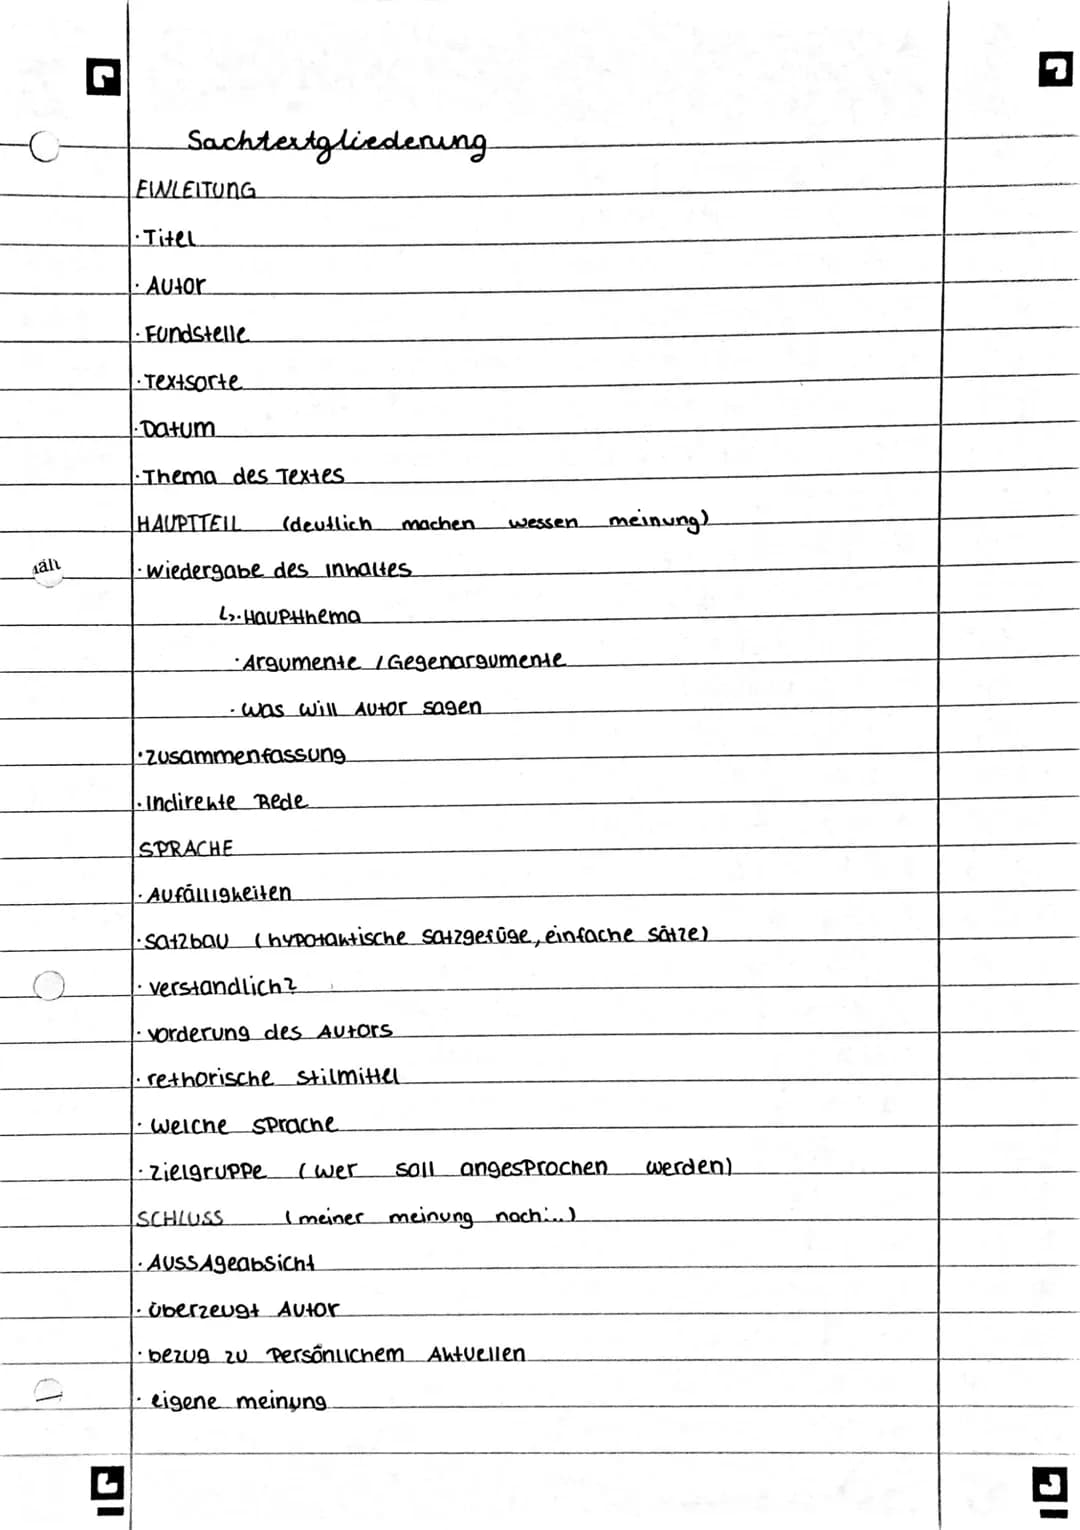 Sachtextgliederung
EINLEITUNG
· Titel
· Autor
· Fundstelle
· Textsorte
· Datum
· Thema des Textes
HAUPTTEIL (deutlich machen wessen meinung)
· Wiedergabe des Inhaltes
↳ · Haupthema
· Argumente / Gegenargumente
· Was will Autor sagen
· Zusammenfassung
· Indirekte Rede
SPRACHE
· Aufälligkeiten
· Satzbau (hypotaktische Satzgefüge, einfache Sätze)
· verstandlich?
· vorderung des Autors
· rethorische Stilmittel
· welche Sprache
· Zielgruppe (wer soll angesprochen werden)
SCHLUSS (meiner meinung nach...)
· Aussageabsicht
· überzeugt Autor
· bezug zu Persönlichem Aktuellen
· eigene meinung